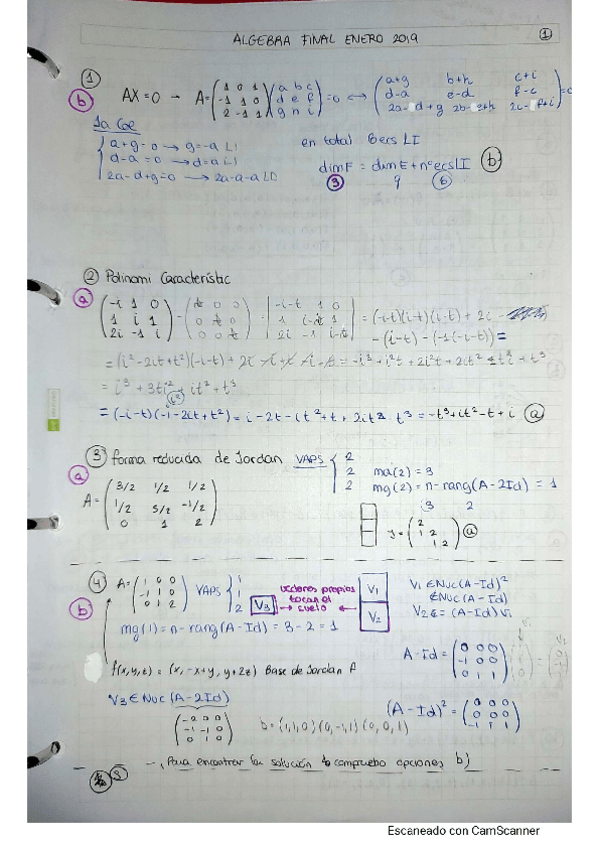 ALGEBRA FINAL ENERO 2019
1
1
b
AX=0 → A=(1 0 1 / -1 1 0 / 2 -1 1)(a b c / d e f / g h i)=0 ⟷ (a+g b+h c+i / d-a e-b f-c / 2a-d+g 2b-e+h 2c-f+i)=0
1a Col
a+g=0 → g=-a LI
d-a=0 → d=a LI
2a-d+g=0 → 2a-a-a LD
en total 6ecs LI
dimF = dimE + nºecsLI
b
3 9 6
2 Polinomi Característic
a
(-i 1 0 / 1 i 1 / 2i -1 i) - (t 0 0 / 0 t 0 / 0 0 t) = |-i-t 1 0 / 1 i-t 1 / 2i -1 i-t| = (-i-t)(i-t)(i-t) + 2i -
- (i-t) - (-1(-i-t)) =
= i³ + 3ti² - it² + t³
= (-i-t)(-1-2it+t²) = i-2t-it²+t+2it² - t³ = -t³+it²-t+i a
3 forma reducida de Jordan VAPS 2
2 ma(2) = 3
2 mg(2) = n-rang(A-2Id) = 1
3 2
a
A = (3/2 1/2 1/2 / 1/2 5/2 -1/2 / 0 1 2)
J = (2 / 1 2 / 1 2) a
4 A = (1 0 0 / -1 1 0 / 0 1 2) VAPS 1 1 2
b
V3
vectores propios tocan el suelo
V1
V2
V1 ∈ Nuc(A-Id)²
∉ Nuc(A-Id)
V2 = (A-Id)V1
mg(1) = n-rang(A-Id) = 3-2 = 1
A-Id = (0 0 0 / -1 0 0 / 0 1 1)
f(x,y,z) = (x, -x+y, y+2z) Base de Jordan f
V3 ∈ Nuc(A-2Id)
(A-Id)² = (0 0 0 / 0 0 0 / -1 1 1)
b = {(1,1,0)(0,-1,1)(0,0,1)
→ Para encontrar la solución compruebo opciones b)
5
Escaneado con CamScanner